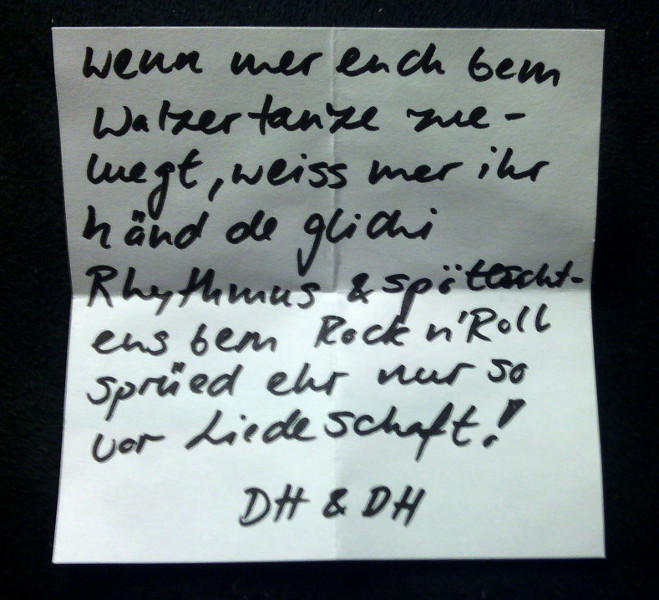 wenn mer euch bem
Walzertanze zue-
luegt, weiss mer ihr
händ de glichi
Rhythmus & spötischt-
ens bem Rock n'Roll
sprüed ehr nur so
vor Liedeschaft!
DH & DH